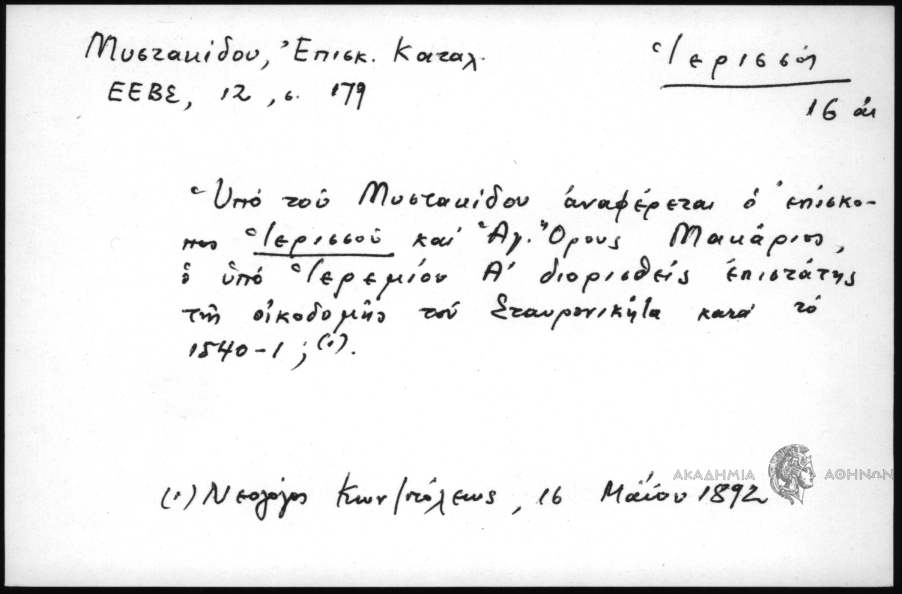 Μυστακίδου, Ἐπισκ. Καταλ.
ΕΕΒΣ, 12, σ. 179
Ἱερισσός
16 αι
Ὑπό τοῦ Μυστακίδου ἀναφέρεται ὁ ἐπίσκο-
πος Ἱερισσοῦ καί Ἁγ. Ὄρους Μακάριος,
ὁ ὑπό Ἱερεμίου Α' διορισθείς ἐπιστάτης
τῆς οἰκοδομῆς τοῦ Σταυρονικήτα κατά τό
1540-1; (1).
(1) Νεολόγος Κων/πόλεως, 16 Μαΐου 1892
ΑΚΑΔΗΜΙΑ ΑΘΗΝΩΝ